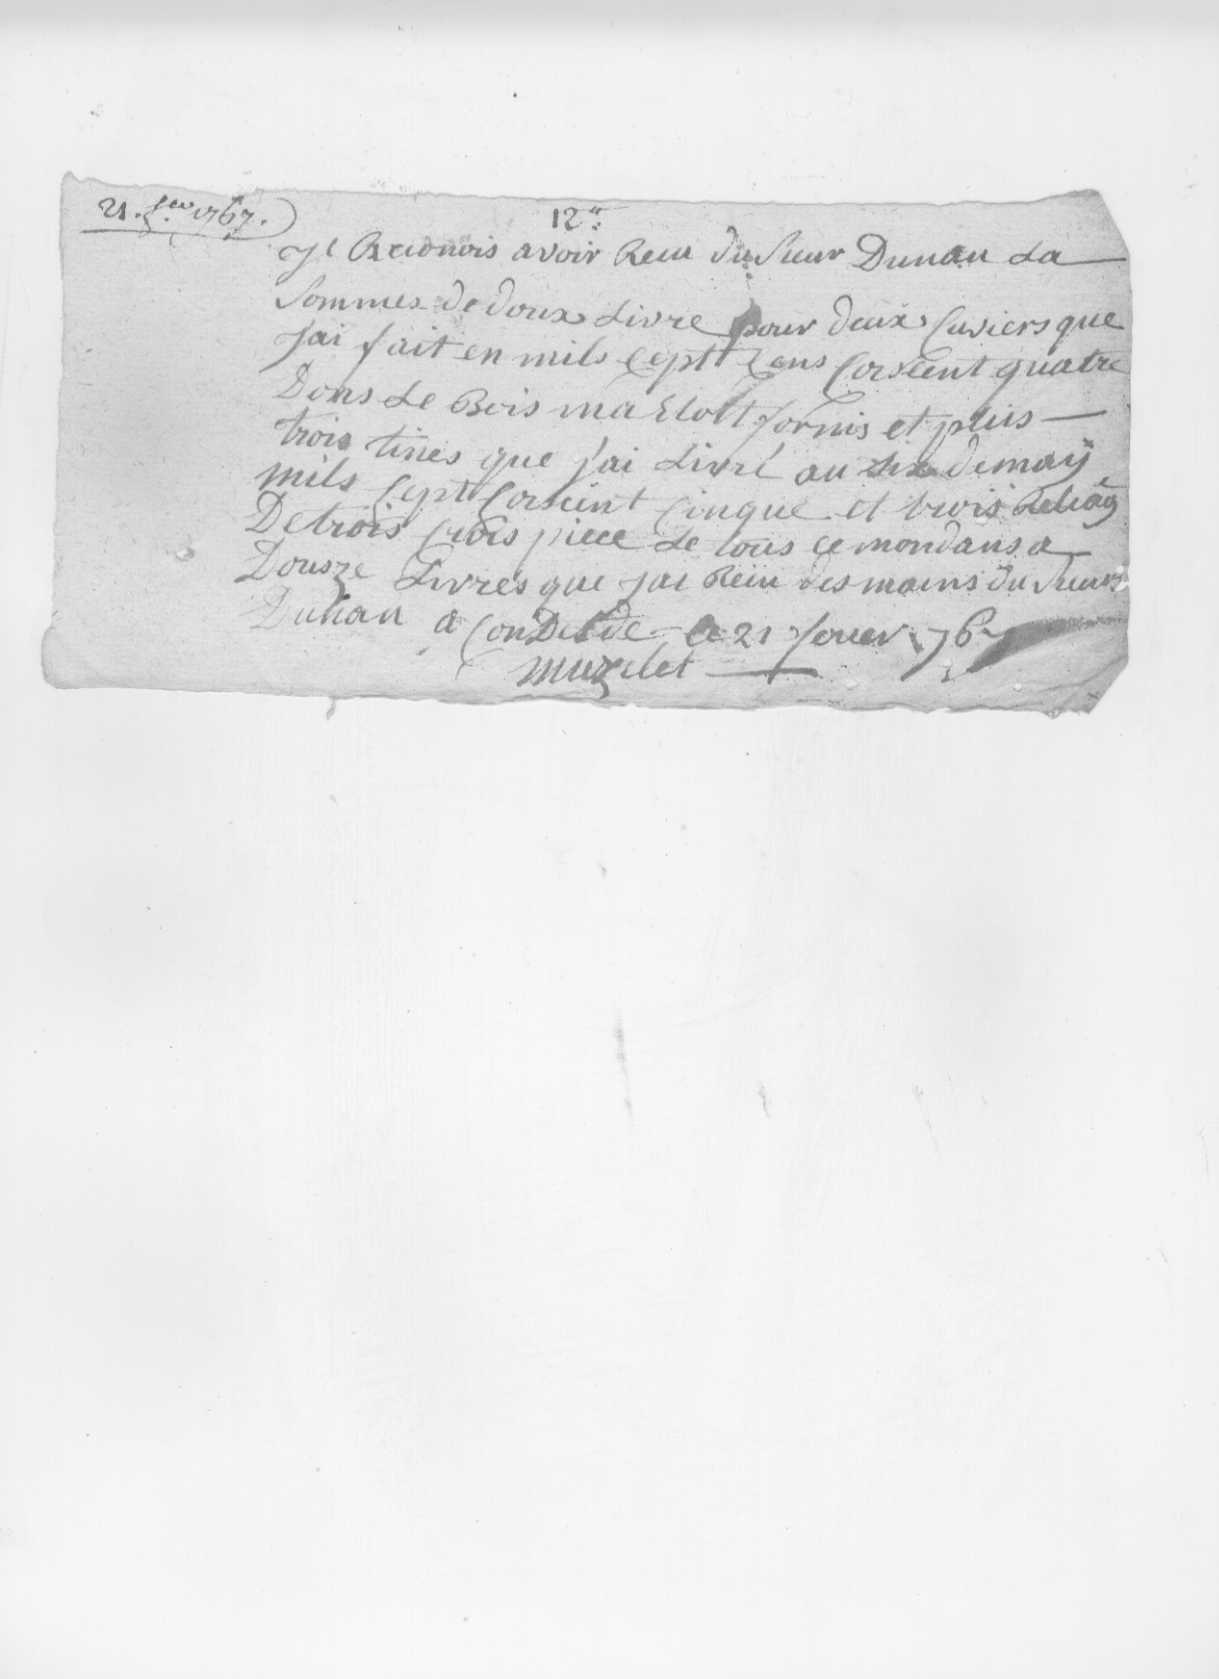 21. fer 1767.
12#
Je Reconois avoir Receu du sieur Dunan La
sommes de doux Livre pour deux Cuviers que
Jai fait en mils cept Cens Corscent quatre
Dons Le Bois ma Etott fornis et plus
trois tines que j'ai Livré au six de maÿ
mils Cept Corscint Cinque et trois
De trois Crois piece Le tous ce mondans a
Dousze Livres que jai Reiu des mains du sieurs
Dunan a le 21 fevrer 1767
muzelet